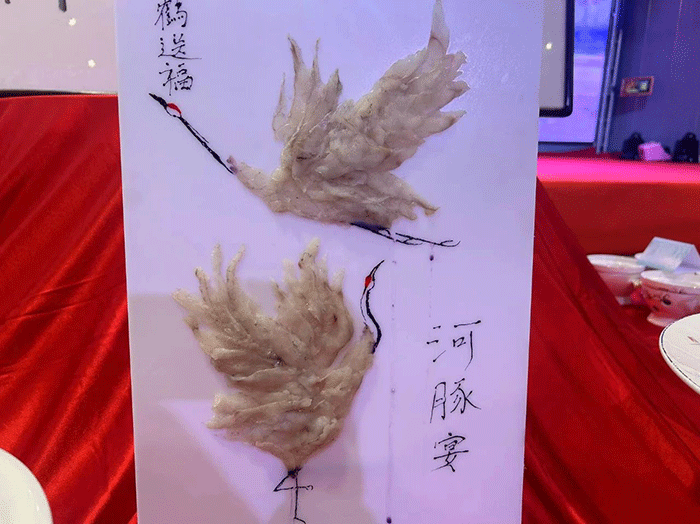 鹤送福
河豚宴